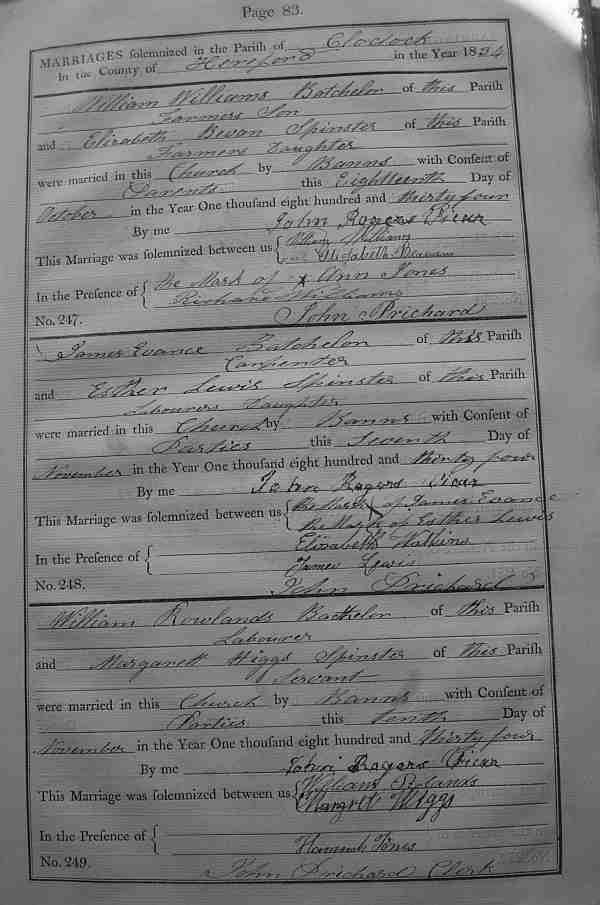 Page 83.
MARRIAGES solemnized in the Parish of Clodock
In the County of Hereford in the Year 1834
William Williams Batchelor of this Parish
Farmers Son
and Elizabeth Bevan Spinster of this Parish
Farmers Daughter
were married in this Church by Banns with Consent of
Parents this Eighteenth Day of
October in the Year One thousand eight hundred and thirty four
By me John Rogers Vicar
This Marriage was solemnized between us William Williams
Elizabeth Bevan
In the Presence of the Mark of x Ann Jones
Richard Williams
No. 247. John Prichard
James Evance Batchelor of this Parish
Carpenter
and Esther Lewis Spinster of this Parish
Labourers Daughter
were married in this Church by Banns with Consent of
Parties this Seventh Day of
November in the Year One thousand eight hundred and thirty four
By me John Rogers Vicar
This Marriage was solemnized between us the Mark x of James Evance
the Mark of Esther Lewis
Elizabeth Watkins
In the Presence of James Lewis
No. 248. John Prichard
William Rowlands Bachelor of this Parish
Labourer
and Margarett Higgs Spinster of this Parish
Servant
were married in this Church by Banns with Consent of
Parties this Tenth Day of
November in the Year One thousand eight hundred and thirty four
By me John Rogers Vicar
This Marriage was solemnized between us William Rolands
Margrett Higgs
In the Presence of Hannah Jones
No. 249. John Prichard Clerk